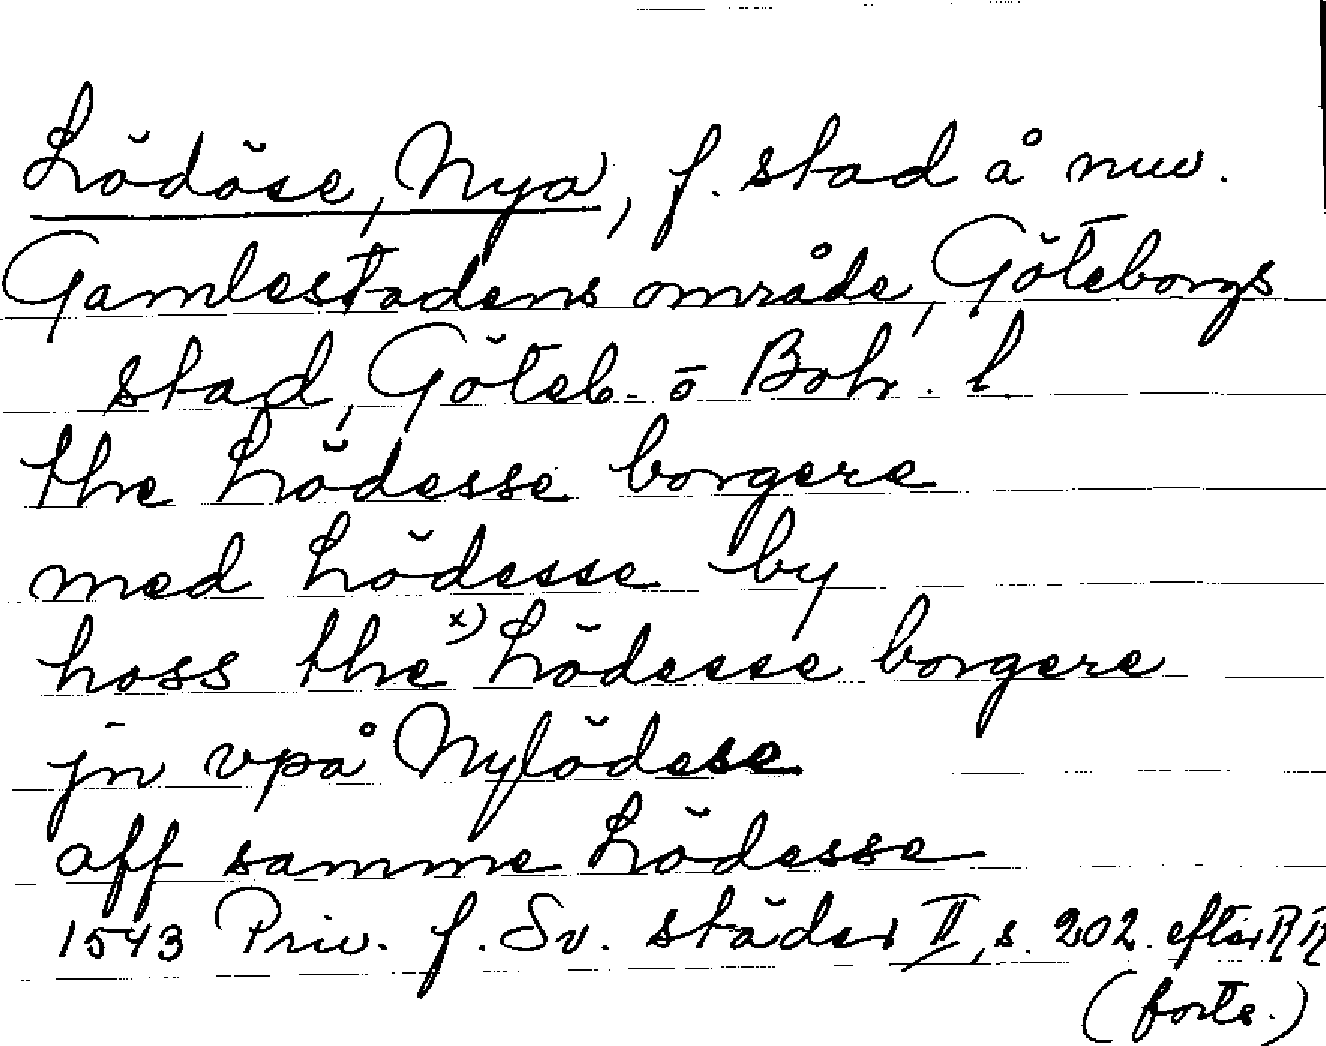 Lödöse, Nya, f. stad å nuv.
Gamlestadens område, Göteborgs
stad, Göteb. o Boh. l
the Lödesse borgere
med Lödesse by
hoss the x) Lödesse borgere
jn vpå Nylödese
aff samme Lödesse
1543 Priv. f. Sv. städer II, s. 202. efter RR
(forts.)